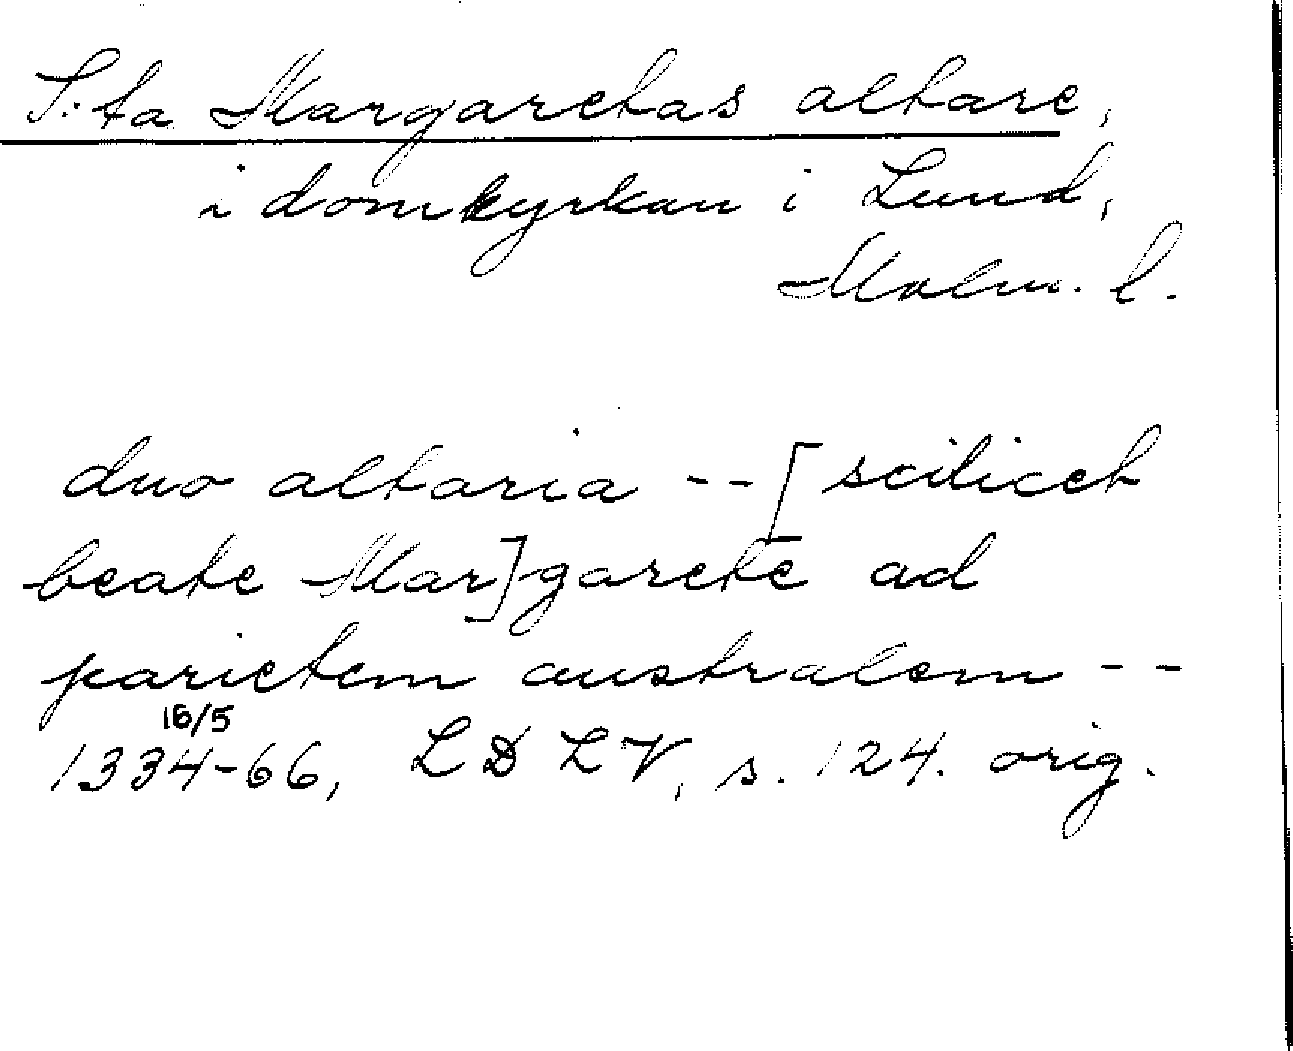 S:ta Margaretas altare,
i domkyrkan i Lund,
Malm. l.
duo altaria -- [scilicet
beate Mar]garete ad
parietem australem --
16/5
1334-66, LDLV, s. 124. orig.